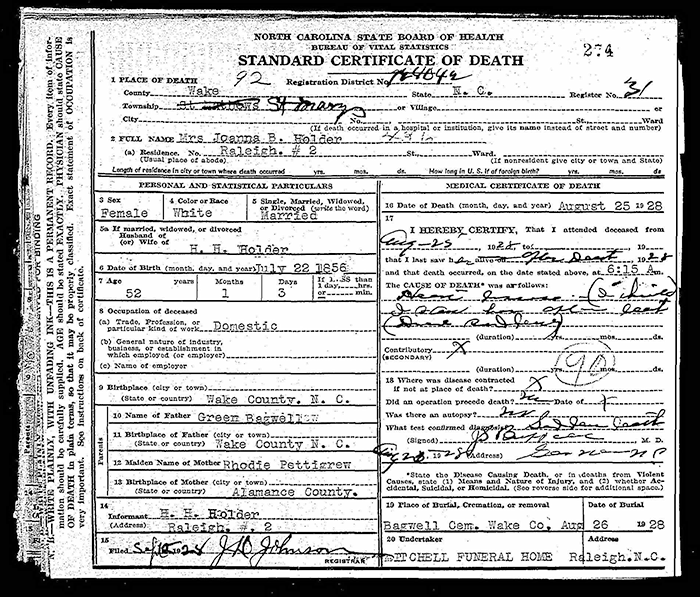 NORTH CAROLINA STATE BOARD OF HEALTH
BUREAU OF VITAL STATISTICS
STANDARD CERTIFICATE OF DEATH
274
1 PLACE OF DEATH 92 Registration District No.
County Wake State N. C. Register No. 31
Township St Marys or Village or
City No. St. Ward
(If death occurred in a hospital or institution, give its name instead of street and number)
2 FULL NAME Mrs Joanna B. Holder
(a) Residence. No. Raleigh. # 2 St. Ward.
(Usual place of abode) (If nonresident give city or town and State)
Length of residence in city or town where death occurred yrs. mos. ds. How long in U. S. if of foreign birth? yrs. mos. ds.
PERSONAL AND STATISTICAL PARTICULARS
3 Sex
Female
4 Color or Race
White
5 Single, Married, Widowed, or Divorced (write the word)
Married
5a If married, widowed, or divorced
Husband of
(or) Wife of
H. H. Holder
6 Date of Birth (month, day, and year) July 22 1856
7 Age years Months Days If LESS than
1 day,......hrs.
or......min.
52 1 3
8 Occupation of deceased
(a) Trade, Profession, or
particular kind of work Domestic
(b) General nature of industry,
business, or establishment in
which employed (or employer)
(c) Name of employer
9 Birthplace (city or town)
(State or country) Wake County. N. C.
Parents
10 Name of Father Green Bagwell
11 Birthplace of Father (city or town)
(State or country) Wake County N. C.
12 Maiden Name of Mother Rhodie Pettigrew
13 Birthplace of Mother (city or town)
(State or country) Alamance County.
14
Informant H. H. Holder
(Address) Raleigh. #. 2
15
Filed Sept 1928 J D Johnson
REGISTRAR
MEDICAL CERTIFICATE OF DEATH
16 Date of Death (month, day, and year) August 25 1928
17
I HEREBY CERTIFY, That I attended deceased from
Aug-25 1928 to 1928
that I last saw her alive on after Death 1928
and that death occurred, on the date stated above, at 6:15 A m.
The CAUSE OF DEATH* was as follows:
I saw her after death
(duration) yrs. mos. ds.
Contributory X
(SECONDARY)
90
(duration) yrs. mos. ds.
18 Where was disease contracted
if not at place of death? X
Did an operation precede death? no Date of X
Was there an autopsy? no
What test confirmed diagnosis? Sudden Death
(Signed) M. D.
1928 (Address) Garner N C
*State the Disease Causing Death, or in deaths from Violent
Causes, state (1) Means and Nature of Injury, and (2) whether Accidental, Suicidal, or Homicidal. (See reverse side for additional space.)
19 Place of Burial, Cremation, or removal Date of Burial
Bagwell Cem. Wake Co. Aug 26 1928
20 Undertaker Address
MITCHELL FUNERAL HOME Raleigh.N.C.
N. B.—WRITE PLAINLY, WITH UNFADING INK—THIS IS A PERMANENT RECORD. Every item of information should be carefully supplied. AGE should be stated EXACTLY. PHYSICIAN should state CAUSE
OF DEATH in plain terms, so that it may be properly classified. Exact statement of OCCUPATION is
very important. See instructions on back of certificate.